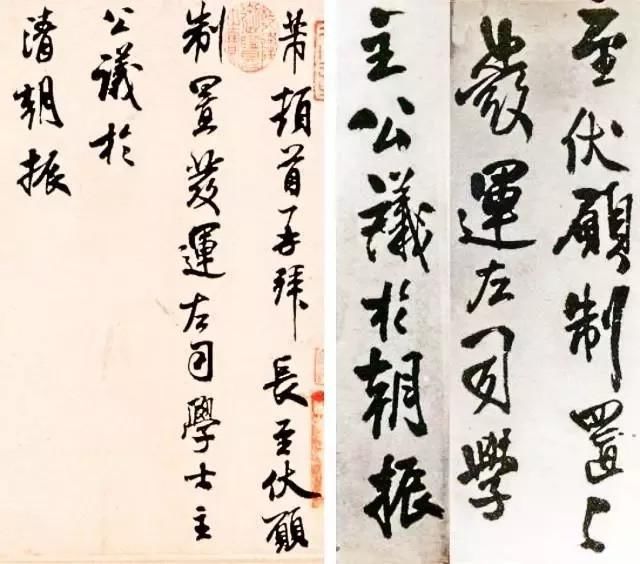 芾頓首再拜 長至伏願
制置發運左司學士主
公議於
清朝振
至伏願制置
發運左司學
主公議於朝振